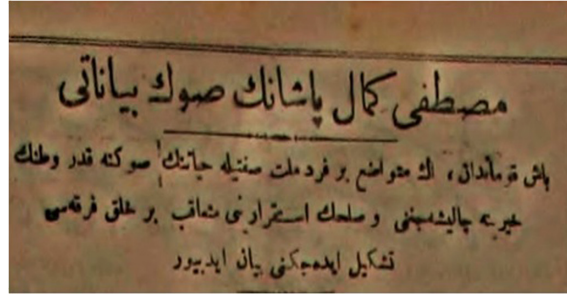 مصطفى كمال پاشانك صوك بياناتى
باش قوماندان، اك متواضع بر فرد ملت صفتيله حياتنك صوكنه قدر وطنك
خيرينه چاليشه‌جغنى و صلحك استقرارينى متعاقب بر خلق فرقه‌سى
تشكيل ايده‌جكنى بيان ايدييور